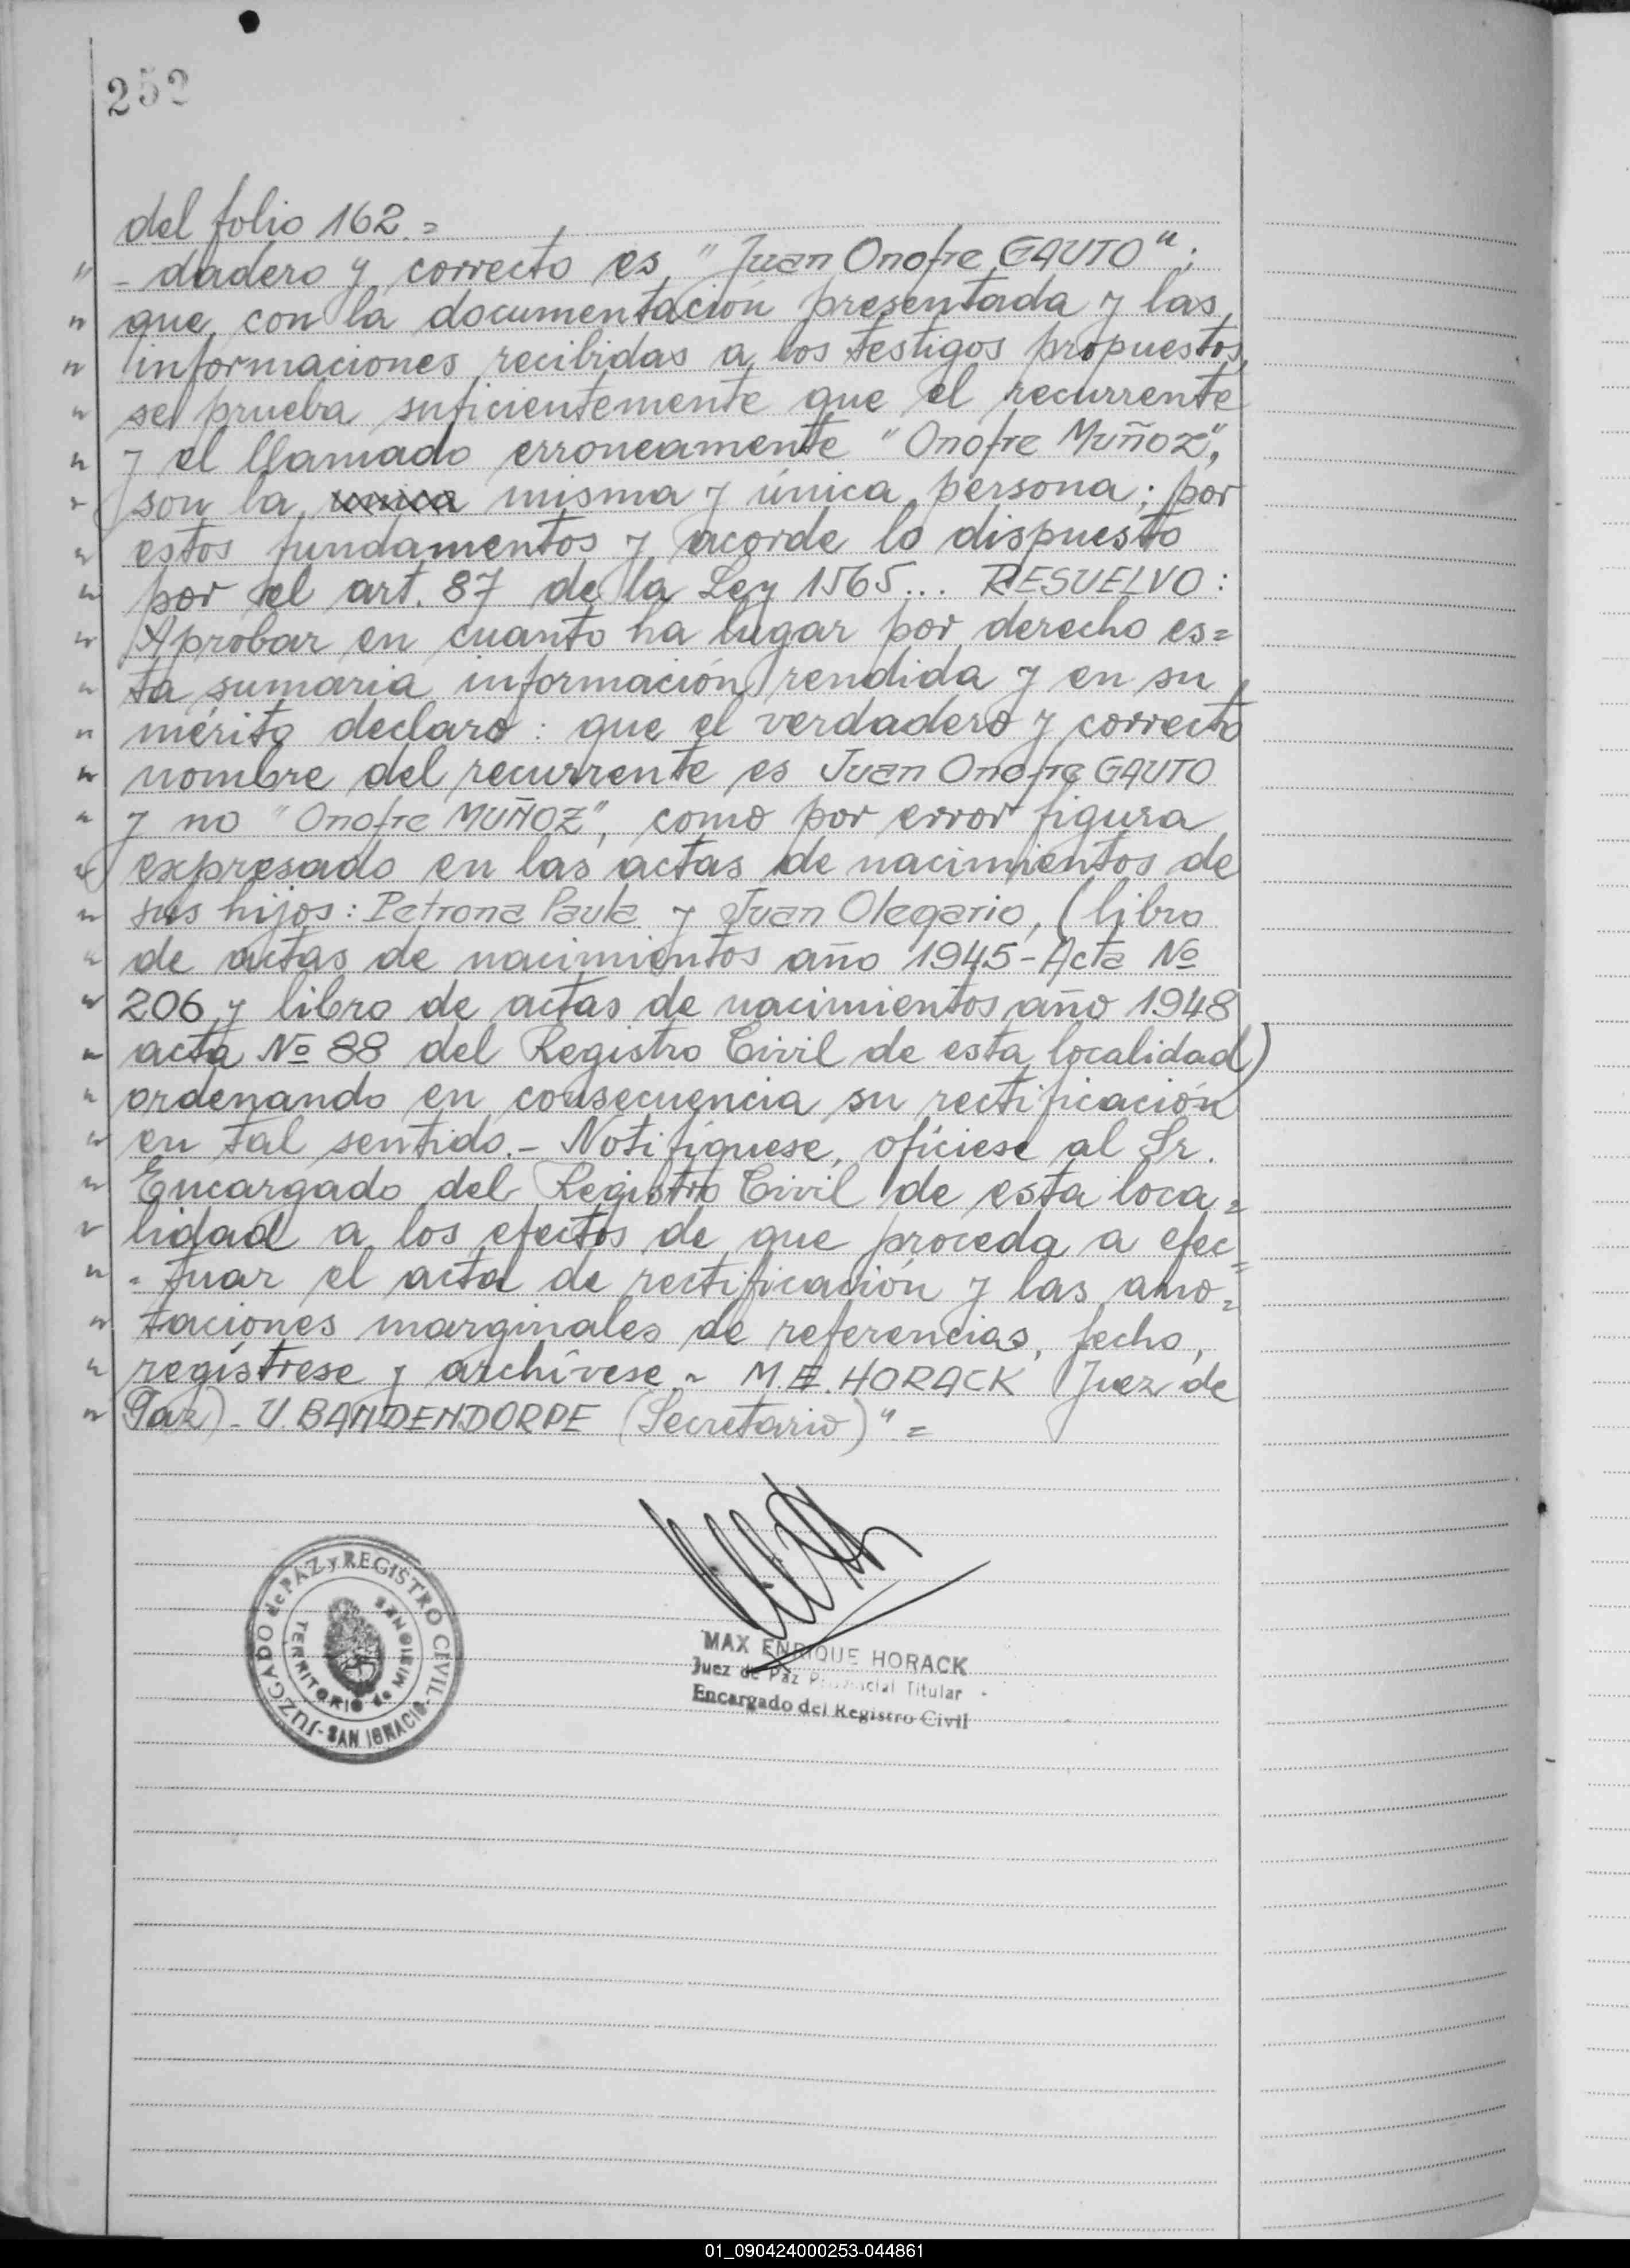 252
del folio 162.=
" - dadero y correcto es "Juan Onofre GAUTO";
" que con la documentación presentada y las
" informaciones recibidas a los testigos propuestos,
" se prueba suficientemente que el recurrente
" y el llamado erroneamente "Onofre Muñoz",
" son la unica misma y única persona; por
" estos fundamentos y acorde lo dispuesto
" por el art. 87 de la Ley 1565... RESUELVO:
" Aprobar en cuanto ha lugar por derecho es=
" ta sumaria información rendida y en su
" mérito declaro: que el verdadero y correcto
" nombre del recurrente es Juan Onofre GAUTO
" y no "Onofre MUÑOZ", como por error figura
" expresado en las actas de nacimientos de
" sus hijos: Petrona Paula y Juan Olegario, (libro
" de actas de nacimientos año 1945-Acta Nº
" 206 y libro de actas de nacimientos año 1948
" acta Nº 88 del Registro Civil de esta localidad)
" ordenando en consecuencia su rectificación
" en tal sentido.- Notifíquese, ofíciese al Sr.
" Encargado del Registro Civil de esta loca=
" lidad a los efectos de que proceda a efec=
" = tuar el acta de rectificación y las ano=
" taciones marginales de referencias, fecho,
" regístrese y archívese.- M.E. HORACK (Juez de
" Paz)- U. BANDENDORPE (Secretario)"=
JUZGADO de PAZ y REGISTRO CIVIL - SAN IGNACIO -
TERRITORIO de MISIONES
MAX ENRIQUE HORACK
Juez de Paz Provincial Titular -
Encargado del Registro Civil
01_090424000253-044861